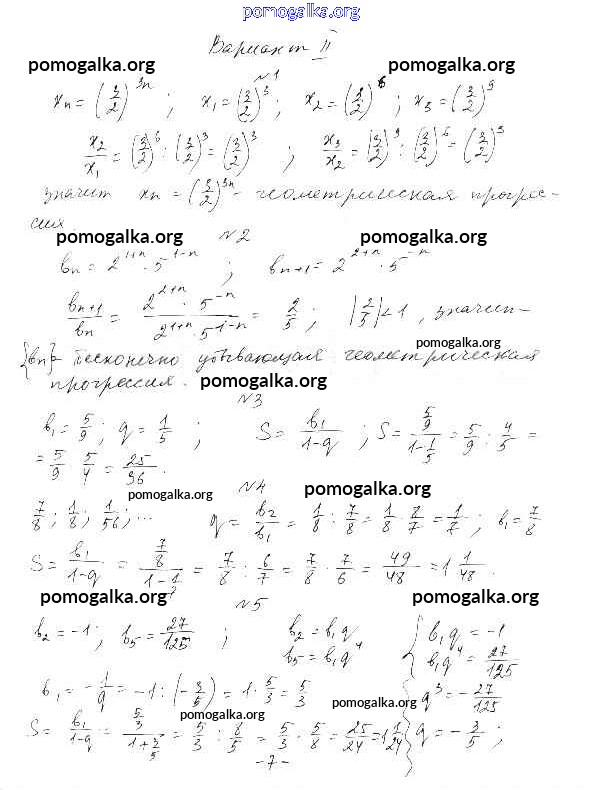 pomogalka.org
Вариант II
pomogalka.org pomogalka.org
№1
xₙ = (3/2)³ⁿ ; x₁ = (3/2)³ ; x₂ = (3/2)⁶ ; x₃ = (3/2)⁹
x₂/x₁ = (3/2)⁶ : (3/2)³ = (3/2)³ ; x₃/x₂ = (3/2)⁹ : (3/2)⁶ = (3/2)³
значит xₙ = (3/2)³ⁿ - геометрическая прогрес-
сия
pomogalka.org №2 pomogalka.org
bₙ = 2¹⁺ⁿ · 5¹⁻ⁿ ; bₙ₊₁ = 2²⁺ⁿ · 5⁻ⁿ
bₙ₊₁/bₙ = (2²⁺ⁿ · 5⁻ⁿ)/(2¹⁺ⁿ · 5¹⁻ⁿ) = 2/5 ; |2/5| < 1 , значит -
pomogalka.org
{bₙ} - бесконечно убывающая геометрическая
прогрессия. pomogalka.org
№3
b₁ = 5/9 ; q = 1/5 ; S = b₁/(1-q) ; S = (5/9)/(1-1/5) = 5/9 : 4/5 =
= 5/9 · 5/4 = 25/36 .
pomogalka.org №4 pomogalka.org
7/8 ; 1/8 ; 1/56 ; ... q = b₂/b₁ = 1/8 : 7/8 = 1/8 · 8/7 = 1/7 ; b₁ = 7/8
S = b₁/(1-q) = (7/8)/(1-1/7) = 7/8 : 6/7 = 7/8 · 7/6 = 49/48 = 1 1/48 .
pomogalka.org №5 pomogalka.org
b₂ = -1 ; b₅ = 27/125 ; b₂ = b₁q { b₁q = -1
b₅ = b₁q⁴ b₁q⁴ = 27/125
b₁ = -1/q = -1 : (-3/5) = 1 · 5/3 = 5/3 { q³ = -27/125
pomogalka.org pomogalka.org
S = b₁/(1-q) = (5/3)/(1+3/5) = 5/3 : 8/5 = 5/3 · 5/8 = 25/24 = 1 1/24 q = -3/5 ;
-7-